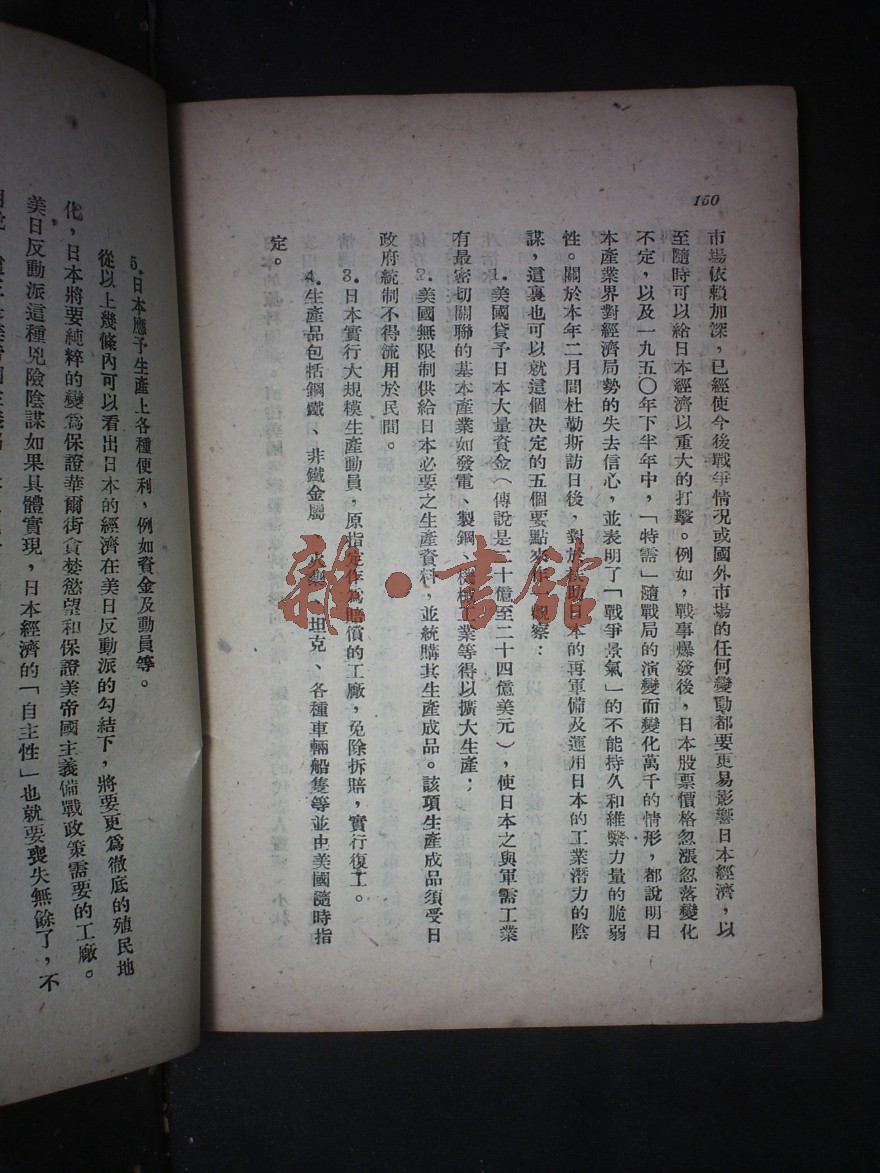 150
市場依賴加深，已經使今後戰爭情況或國外市場的任何變動都要更易影響日本經濟，以
至隨時可以給日本經濟以重大的打擊。例如，戰事爆發後，日本股票價格忽漲忽落變化
不定，以及一九五〇年下半年中，「特需」隨戰局的演變而變化萬千的情形，都說明日
本產業界對經濟局勢的失去信心，並表明了「戰爭景氣」的不能持久和維繫力量的脆弱
性。關於本年二月間杜勒斯訪日後，對於扶助日本的再軍備及運用日本的工業潛力的陰
謀，這裏也可以就這個決定的五個要點來作一觀察：
1.美國貸予日本大量資金（傳說是二十億至二十四億美元），使日本之與軍需工業
有最密切關聯的基本產業如發電、製鋼、機械工業等得以擴大生產；
2.美國無限制供給日本必要之生產資料，並統購其生產成品。該項生產成品須受日
政府統制不得流用於民間。
3.日本實行大規模生產動員，原指定作為賠償的工廠，免除拆賠，實行復工。
4.生產品包括鋼鐵、非鐵金屬、火藥、坦克、各種車輛船隻等並由美國隨時指
定。
5.日本應予生產上各種便利，例如資金及動員等。
從以上幾條內可以看出日本的經濟在美日反動派的勾結下，將要更爲徹底的殖民地
化，日本將要純粹的變爲保證華爾街貪婪慾望和保證美帝國主義備戰政策需要的工廠。
美日反動派這種兇險陰謀如果具體實現，日本經濟的「自主性」也就要喪失無餘了，不
雜·書館